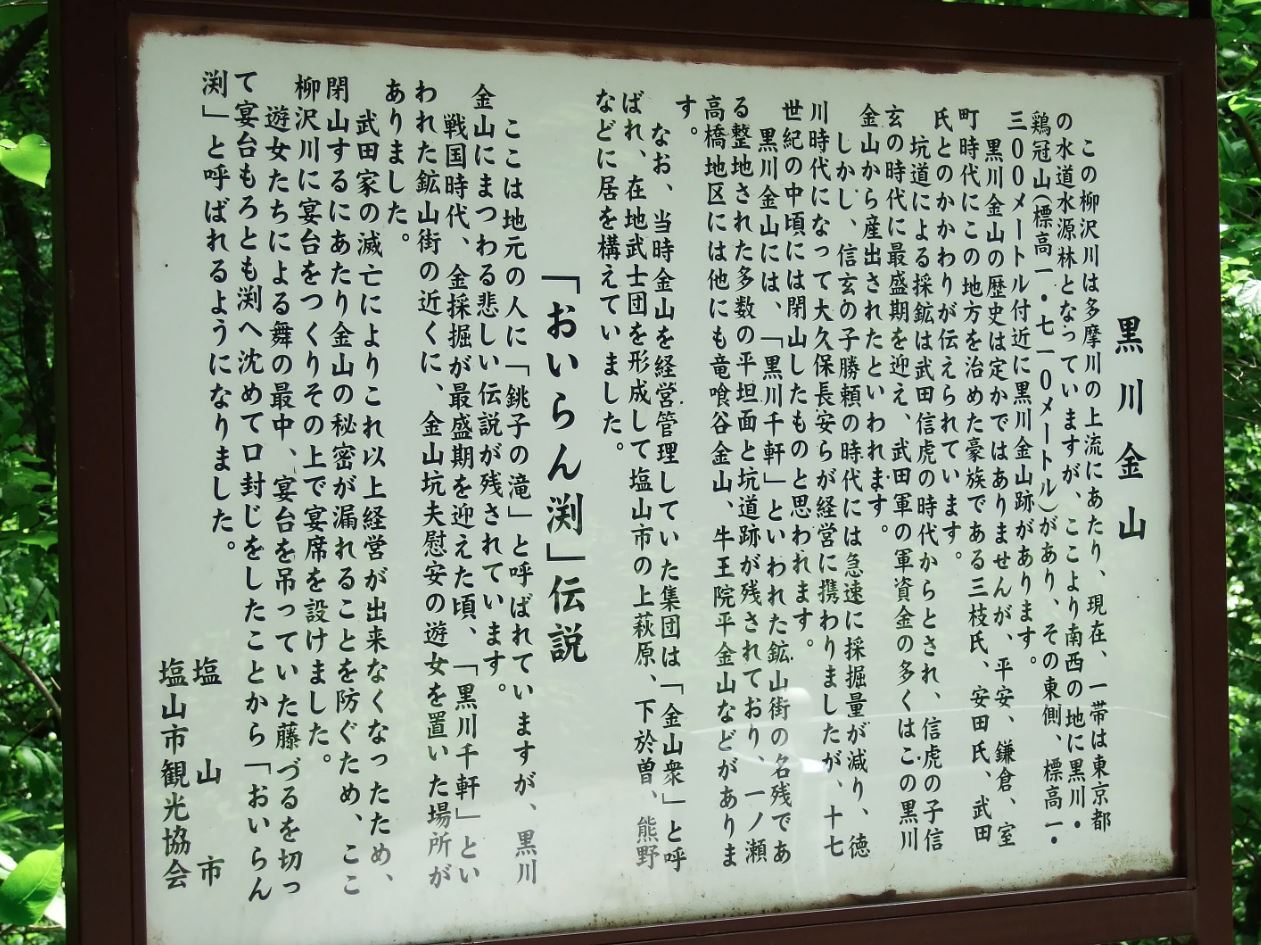 黒川金山
この柳沢川は多摩川の上流にあたり、現在、一帯は東京都
の水道水源林となっていますが、ここより南西の地に黒川・
鶏冠山(標高一・七一0メートル)があり、その東側、標高一・
三00メートル付近に黒川金山跡があります。
黒川金山の歴史は定かではありませんが、平安、鎌倉、室
町時代にこの地方を治めた豪族である三枝氏、安田氏、武田
氏とのかかわりが伝えられています。
坑道による採鉱は武田信虎の時代からとされ、信虎の子信
玄の時代に最盛期を迎え、武田軍の軍資金の多くはこの黒川
金山から産出されたといわれます。
しかし、信玄の子勝頼の時代には急速に採掘量が減り、徳
川時代になって大久保長安らが経営に携わりましたが、十七
世紀の中頃には閉山したものと思われます。
黒川金山には、「黒川千軒」といわれた鉱山街の名残であ
る整地された多数の平坦面と坑道跡が残されており、一ノ瀬
高橋地区には他にも竜喰谷金山、牛王院平金山などがありま
す。
なお、当時金山を経営管理していた集団は「金山衆」と呼
ばれ、在地武士団を形成して塩山市の上萩原、下於曽、熊野
などに居を構えていました。
「おいらん渕」伝説
ここは地元の人に「銚子の滝」と呼ばれていますが、黒川
金山にまつわる悲しい伝説が残されています。
戦国時代、金採掘が最盛期を迎えた頃、「黒川千軒」とい
われた鉱山街の近くに、金山坑夫慰安の遊女を置いた場所が
ありました。
武田家の滅亡によりこれ以上経営が出来なくなったため、
閉山するにあたり金山の秘密が漏れることを防ぐため、ここ
柳沢川に宴台をつくりその上で宴席を設けました。
遊女たちによる舞の最中、宴台を吊っていた藤づるを切っ
て宴台もろとも渕へ沈めて口封じをしたことから「おいらん
渕」と呼ばれるようになりました。
塩山市
塩山市観光協会